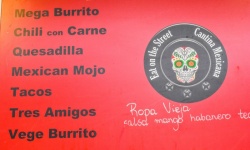 Mega Burrito
Chili con Carne
Quesadilla
Mexican Mojo
Tacos
Tres Amigos
Vege Burrito
Eat on the Street
Cantina Mexicana
Ropa Vieja
salsa mango habanero